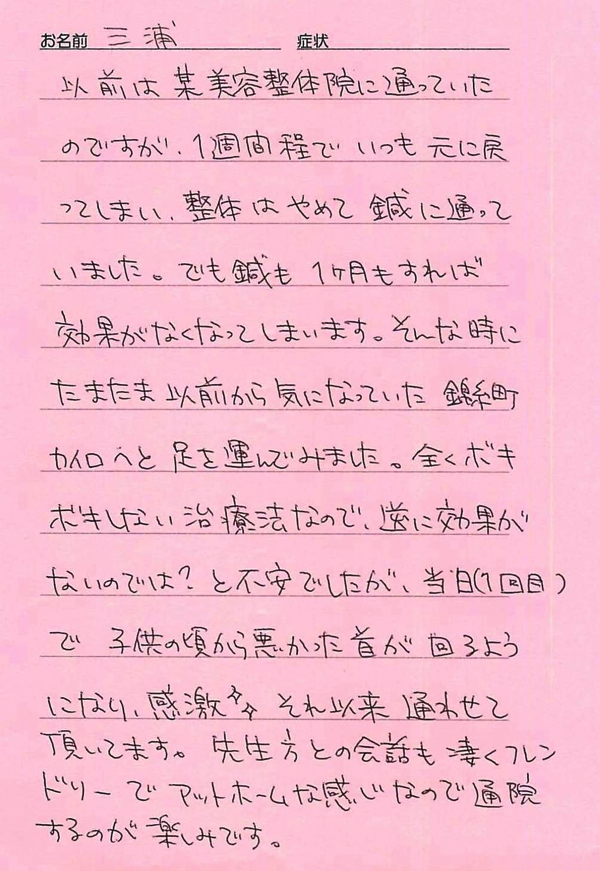 お名前 三浦 症状
以前は某美容整体院に通っていた
のですが、1週間程でいつも元に戻
ってしまい、整体はやめて鍼に通って
いました。でも鍼も1ヶ月もすれば
効果がなくなってしまいます。そんな時に
たまたま以前から気になっていた錦糸町
カイロへと足を運んでみました。全くボキ
ボキしない治療法なので、逆に効果が
ないのでは?と不安でしたが、当日(1回目)
で子供の頃から悪かった首が回るよう
になり、感激✨それ以来通わせて
頂いてます。先生方との会話も凄くフレン
ドリーでアットホームな感じなので通院
するのが楽しみです。